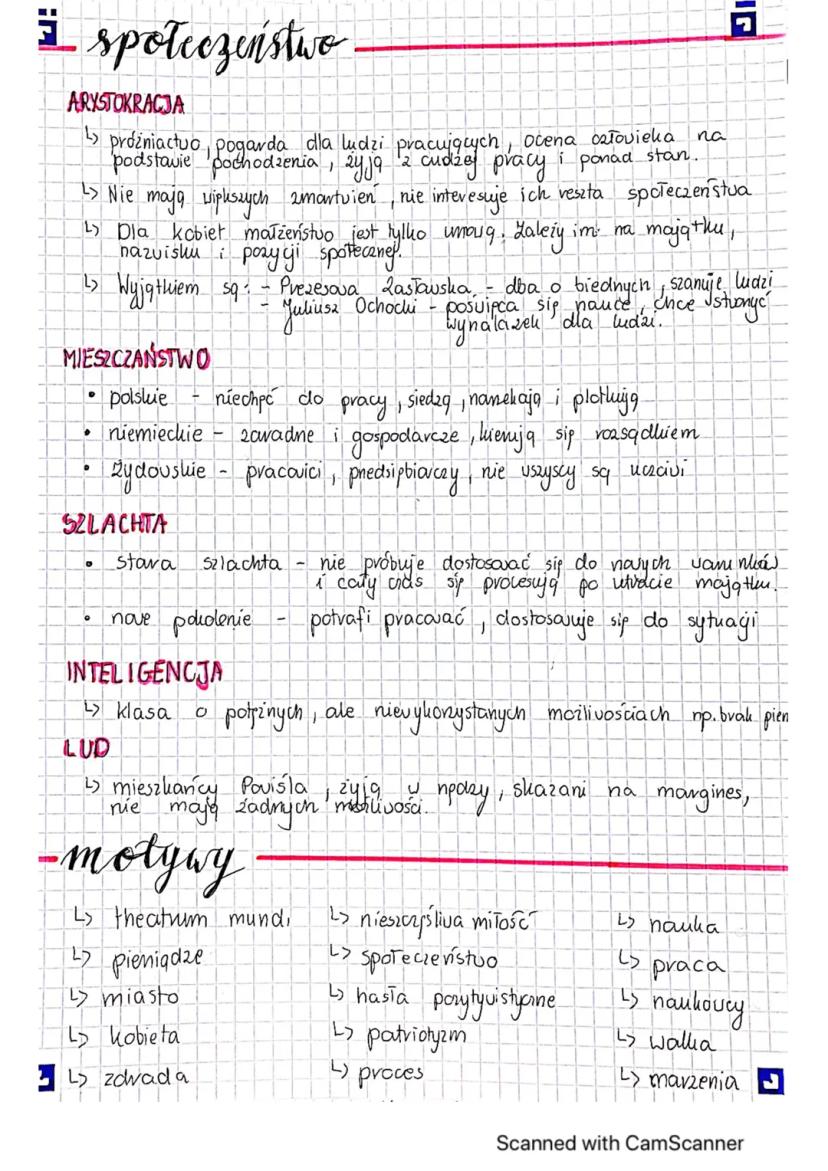 społeczeństwo
ARYSTOKRACJA
↳ próżniactwo, pogarda dla ludzi pracujących, ocena człowieka na
podstawie pochodzenia, żyją z cudzej pracy i ponad stan.
↳ Nie mają większych zmartwień, nie interesuje ich reszta społeczeństwa
↳ Dla kobiet małżeństwo jest tylko umową. Zależy im na majątku,
nazwisku i pozycji społecznej.
↳ Wyjątkiem są: - Prezesowa Zasławska - dba o biednych, szanuje ludzi
- Juliusz Ochocki - poświęca się nauce, chce stworzyć
wynalazek dla ludzi.
MIESZCZAŃSTWO
• polskie - niechęć do pracy, siedzą, narzekają i plotkują
• niemieckie - zaradne i gospodarcze, kierują się rozsądkiem
• żydowskie - pracowici, przedsiębiorczy, nie wszyscy są uczciwi
SZLACHTA
• stara szlachta - nie próbuje dostosować się do nowych warunków
i cały czas się procesują po utracie majątku.
• nowe pokolenie - potrafi pracować, dostosowuje się do sytuacji
INTELIGENCJA
↳ klasa o potężnych, ale niewykorzystanych możliwościach np. brak pien
LUD
↳ mieszkańcy Powiśla, żyją w nędzy, skazani na margines,
nie mają żadnych możliwości.
motywy
↳ theatrum mundi ↳ nieszczęśliwa miłość ↳ nauka
↳ pieniądze ↳ społeczeństwo ↳ praca
↳ miasto ↳ hasła pozytywistyczne ↳ naukowcy
↳ kobieta ↳ patriotyzm ↳ walka
↳ zdrada ↳ proces ↳ marzenia
Scanned with CamScanner